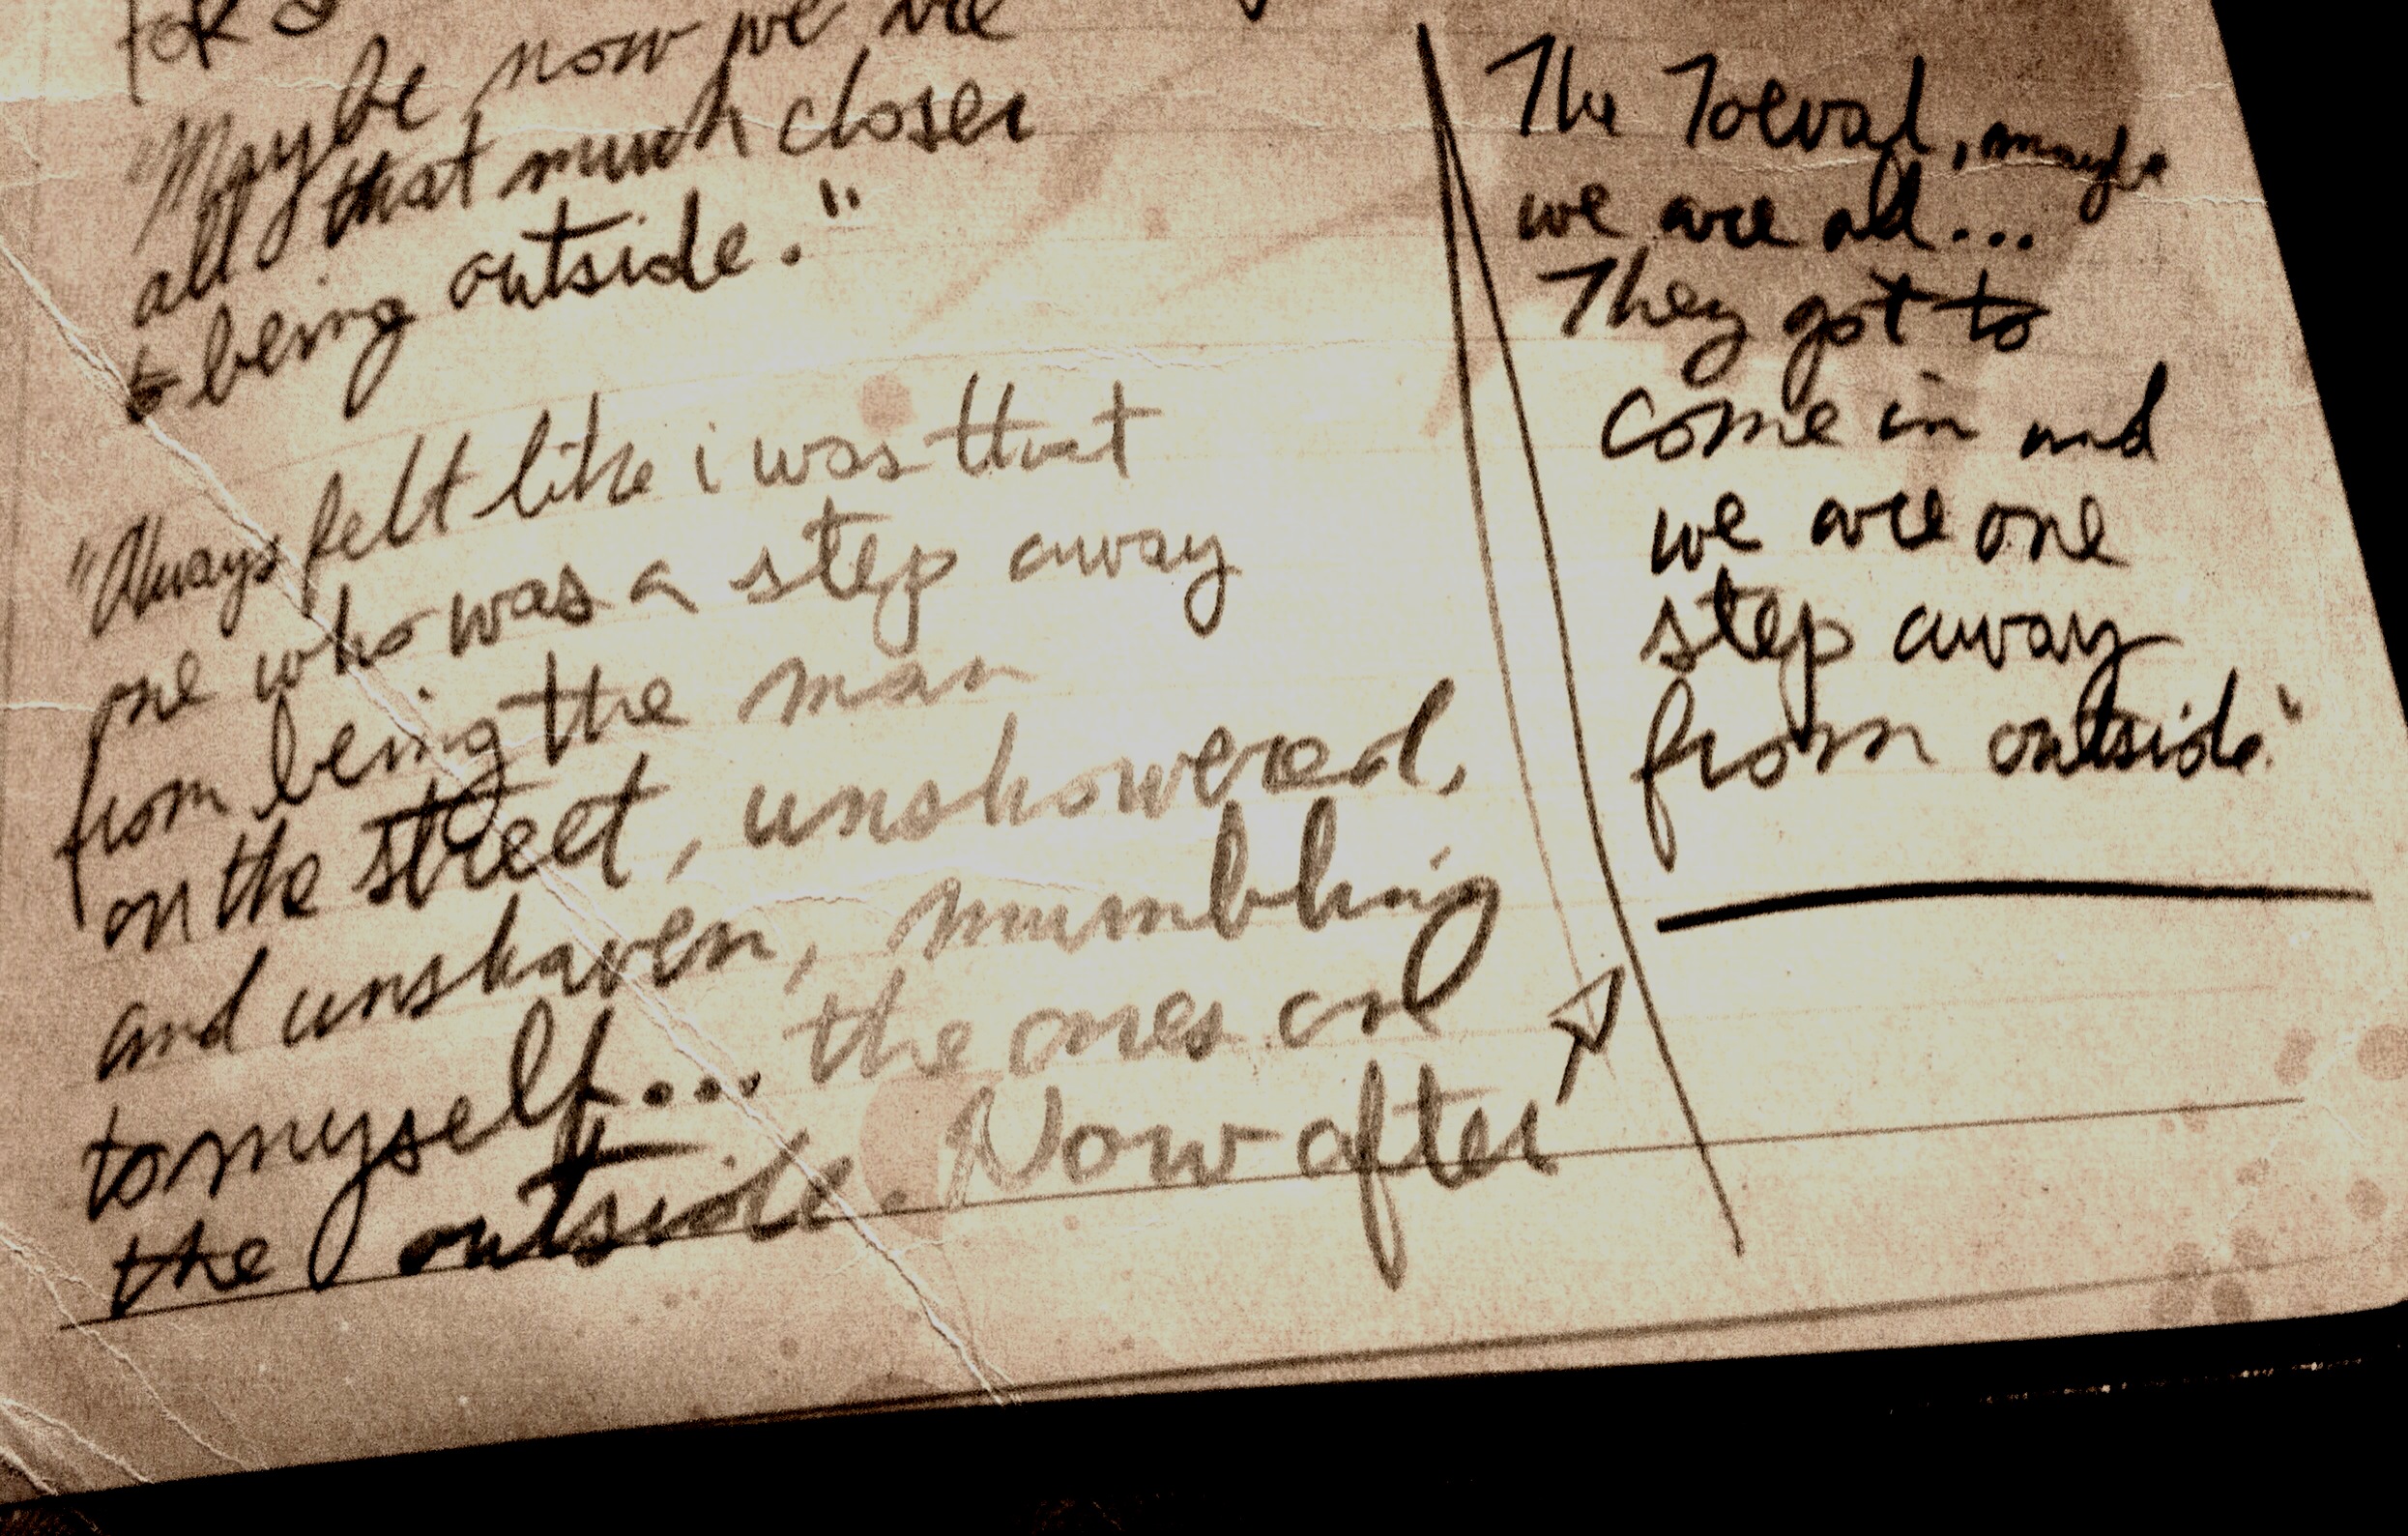 "Maybe now we are
all that much closer
to being outside."
"Always felt like i was that
one who was a step away
from being the man
on the street, unshowered,
and unshaven, mumbling
to myself... the ones on
the outside. Now after
The Toeval, maybe
we are all...
They got to
come in and
we are one
step away
from outside."